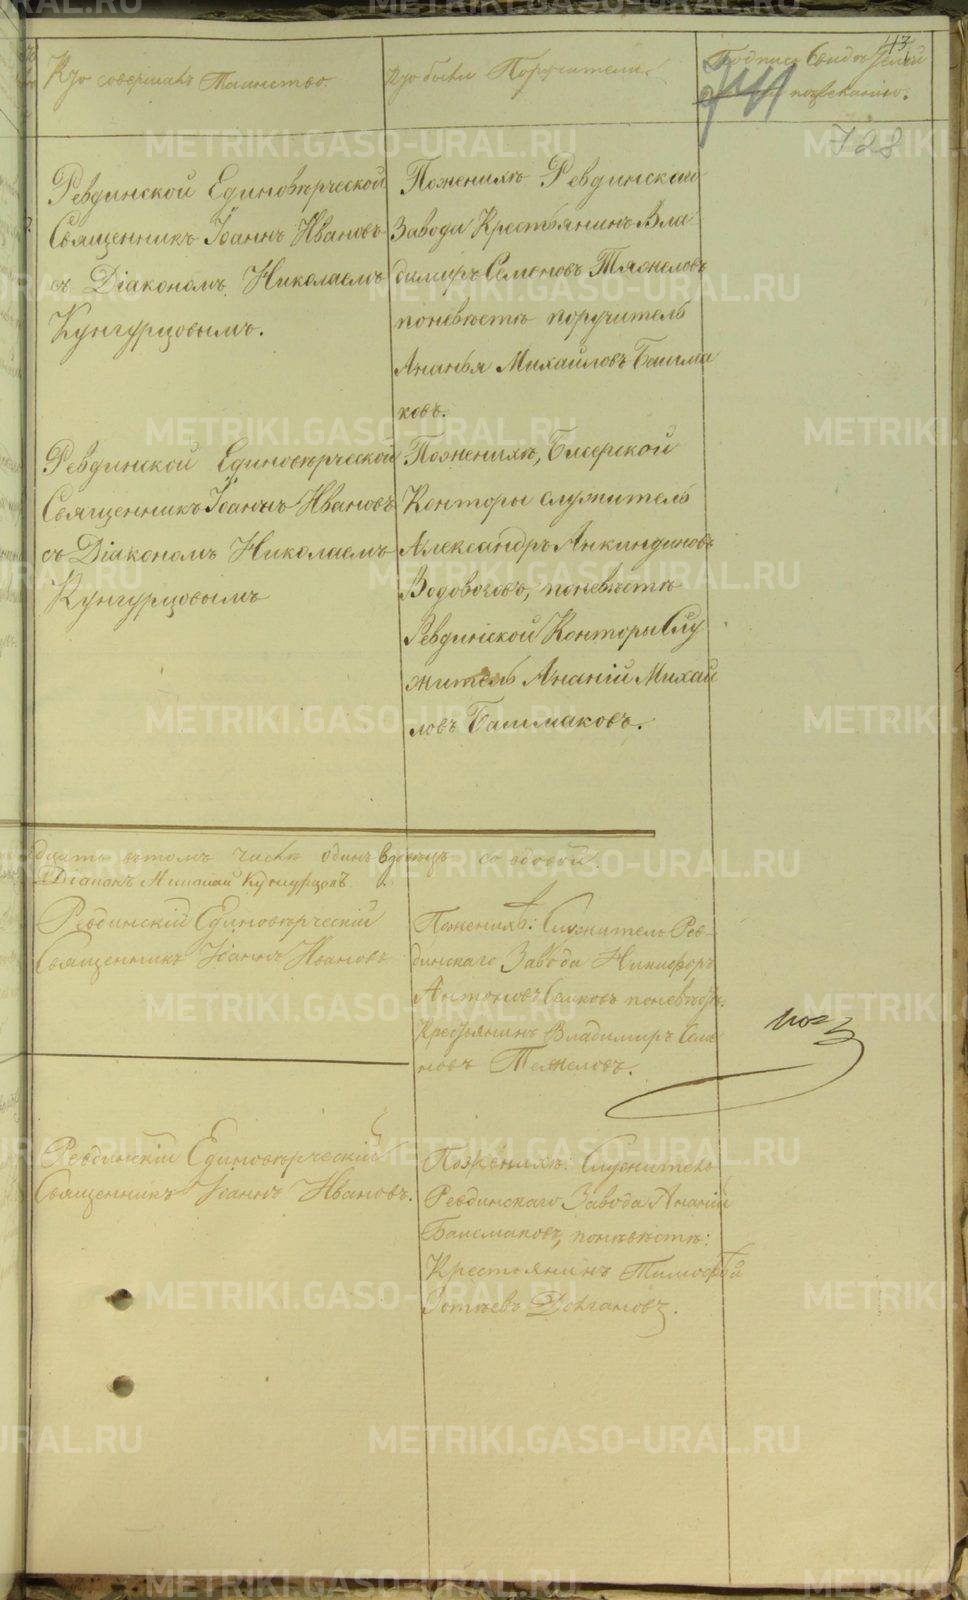 43
Кто совершалъ Таинство.
Кто были Поручители.
Подпись Свидѣтелей
по желанію.
728
Ревдинской Единовѣрческой
Священникъ Іоаннъ Ивановъ
съ Діакономъ Николаемъ
Кунгурцовымъ.
Поженихѣ Ревдинскаго
Завода Крестьянинъ Вла
димиръ Семеновъ Тяжеловъ
поневѣстѣ поручитель
Ананья Михайловъ Башма
ковъ.
Ревдинской Единовѣрческой
Священникъ Іоаннъ Ивановъ
съ Діакономъ Николаемъ
Кунгурцовымъ
Поженихѣ, Бисерской
Конторы служитель
Александръ Анкиндиновъ
Водовозовъ, поневѣстѣ
Ревдинской Конторы Слу
житель Ананій Михай
ловъ Башмаковъ.
вътомъ числѣ одинъ вдовецъ со вдовой.
Діаконъ Николай Кунгурцовъ
Ревдинскій Единовѣрческій
Священникъ Іоаннъ Ивановъ
Поженихѣ: Служитель Рев-
динскаго Завода Никифоръ
Антоновъ поневѣстѣ
Крестьянинъ Владимиръ Семе
новъ Тяжеловъ.
Ревдинскій Единовѣрческій
Священникъ Іоаннъ Ивановъ.
Поженихѣ: Служитель
Ревдинскаго Завода Ананій
Башмаковъ, поневѣстѣ:
Крестьянинъ Тимофей
METRIKI.GASO-URAL.RU